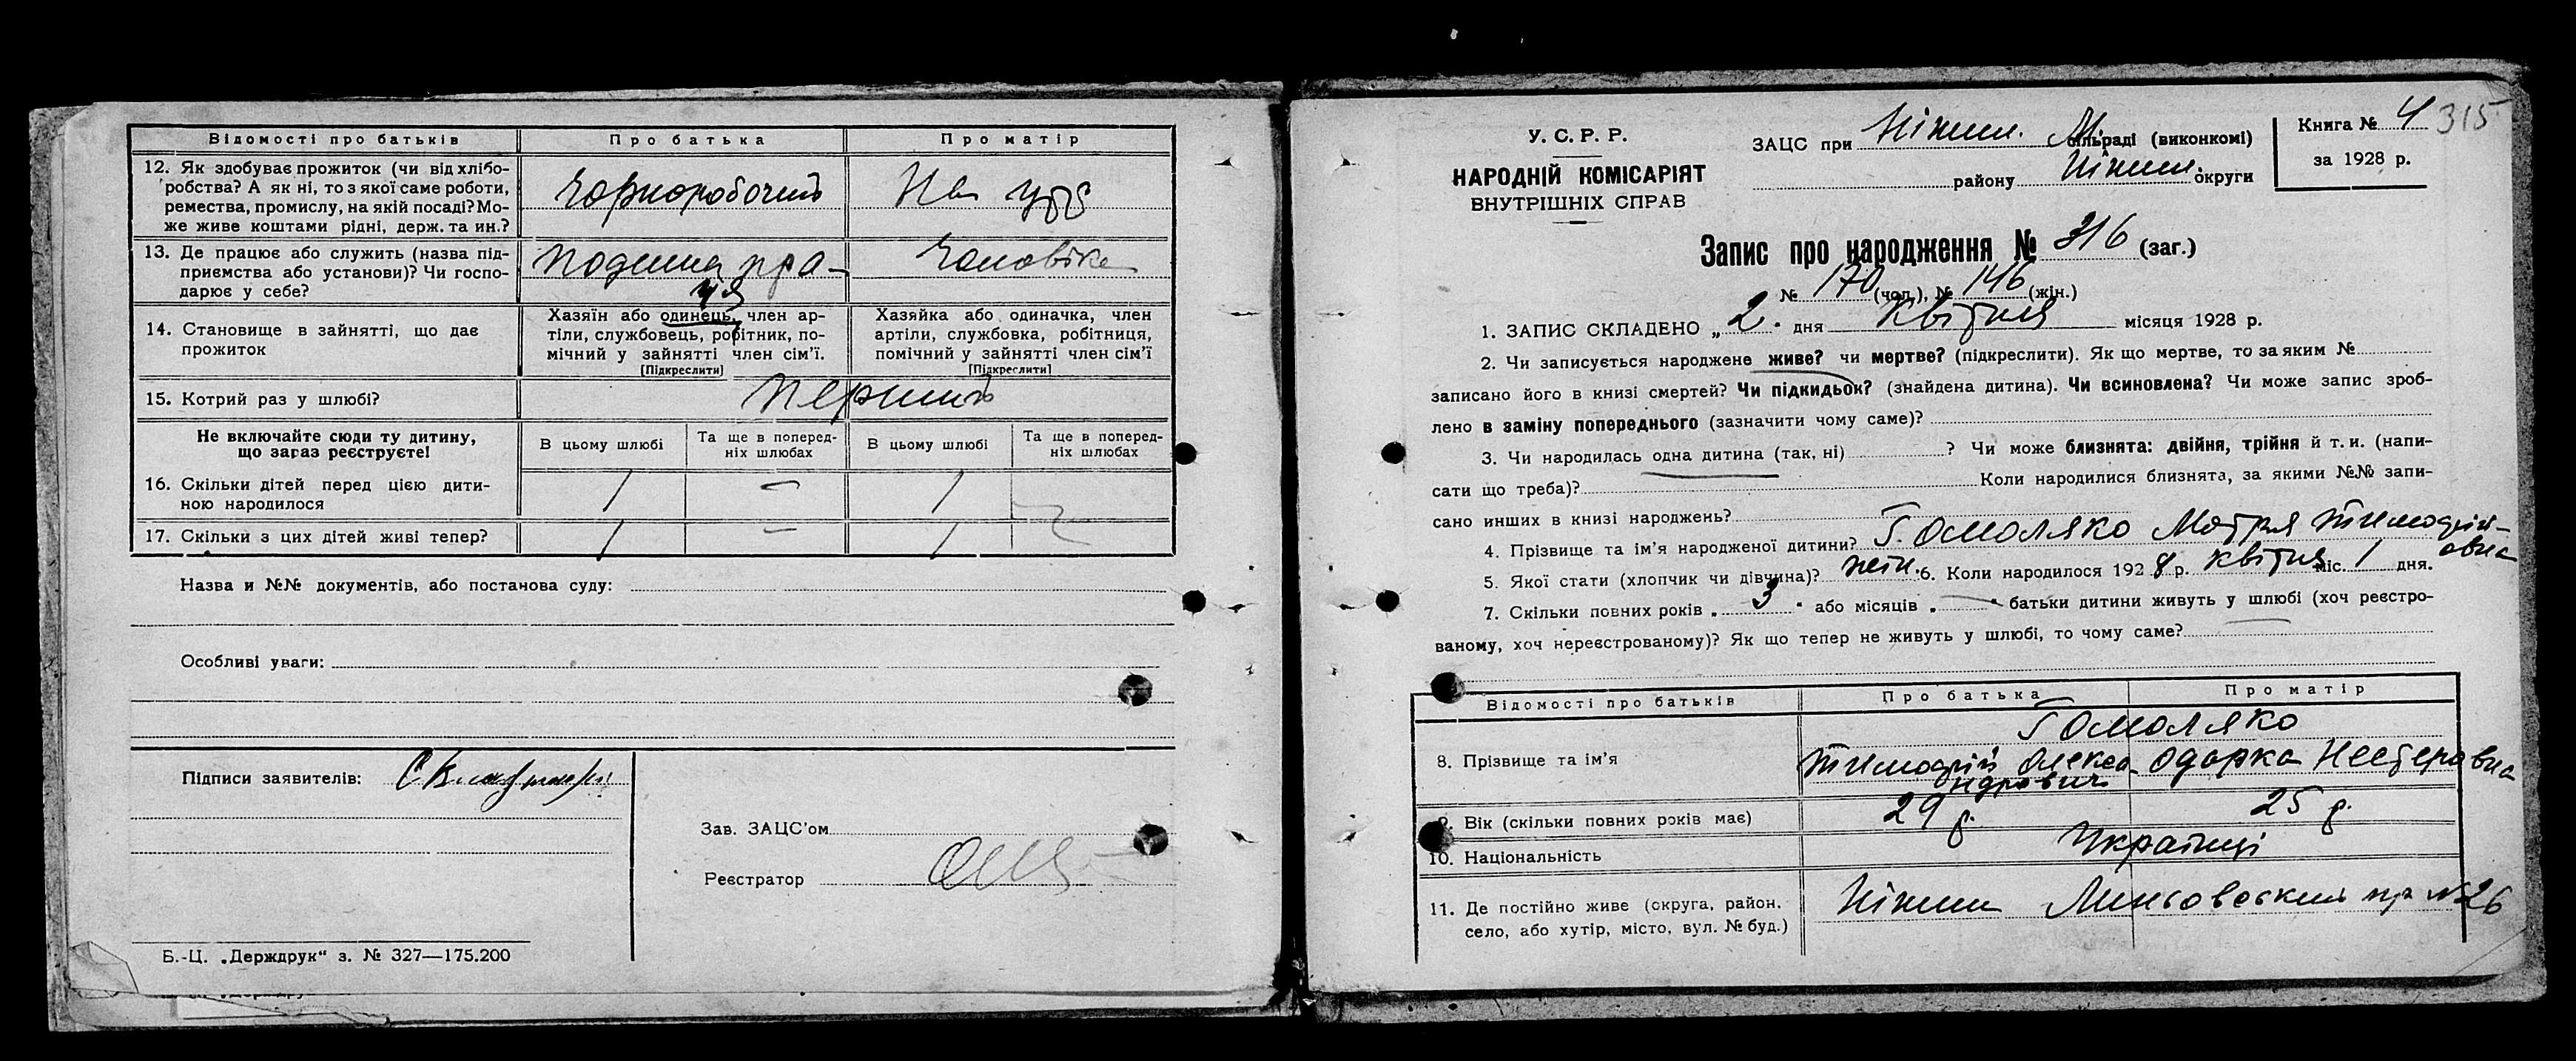 Відомості про батьків Про батька Про матір
12. Як здобуває прожиток (чи від хлібо-
робства? А як ні, то з якої саме роботи,
ремества, промислу, на якій посаді? Мо-
же живе коштами рідні, держ. та ин.?
Чорноробочий На утр
13. Де працює або служить (назва під-
приємства або установи)? Чи госпо-
дарює у себе?
Поденна пра-
ця
Чоловіка
14. Становище в зайнятті, що дає
прожиток
Хазяїн або одинець, член ар-
тіли, службовець, робітник, по-
мічний у зайнятті член сім'ї.
[Підкреслити]
Хазяйка або одиначка, член
артіли, службовка, робітниця,
помічний у зайнятті член сім'ї
[Підкреслити]
15. Котрий раз у шлюбі? Перший
Не включайте сюди ту дитину,
що зараз реєструєте!
В цьому шлюбі Та ще в поперед-
ніх шлюбах В цьому шлюбі Та ще в поперед-
ніх шлюбах
16. Скільки дітей перед цією дити-
ною народилося 1 — 1
17. Скільки з цих дітей живі тепер? 1 — 1
Назва и №№ документів, або постанова суду:
Особливі уваги:
Підписи заявителів:
Зав. ЗАЦС'ом
Реєстратор
Б.-Ц. „Держдрук" з. № 327—175.200
У. С. Р. Р.
НАРОДНІЙ КОМІСАРІЯТ
ВНУТРІШНІХ СПРАВ
ЗАЦС при Ніжин. М. сільраді (виконкомі)
району Ніжин. округи
Книга № 4
за 1928 р.
315
Запис про народження № 316 (заг.)
№ 170 (чол.), № 146 (жін.)
1. ЗАПИС СКЛАДЕНО „2" дня Квітня місяця 1928 р.
2. Чи записується народжене живе? чи мертве? (підкреслити). Як що мертве, то за яким №
записано його в книзі смертей? Чи підкидьок? (знайдена дитина). Чи всиновлена? Чи може запис зроб-
лено в заміну попереднього (зазначити чому саме)?
3. Чи народилась одна дитина (так, ні) ? Чи може близнята: двійня, трійня й т. и. (напи-
сати що треба)? Коли народилися близнята, за якими №№ запи-
сано инших в книзі народжень?
4. Прізвище та ім'я народженої дитини? Гомоляко Мотря Тимофій-
овна
5. Якої стати (хлопчик чи дівчина)? жін. 6. Коли народилося 1928 р. Квітня міс. 1 дня.
7. Скільки повних років „3" або місяців „—" батьки дитини живуть у шлюбі (хоч реєстро-
ваному, хоч нереєстрованому)? Як що тепер не живуть у шлюбі, то чому саме?
Відомості про батьків Про батька Про матір
Гомоляко
8. Прізвище та ім'я Тимофій Олекса- Одарка Нестеровна
ндрович
9. Вік (скільки повних років має) 29 р. 25 р.
10. Національність Українці
11. Де постійно живе (округа, район,
село, або хутір, місто, вул. № буд.)
Ніжин № 26